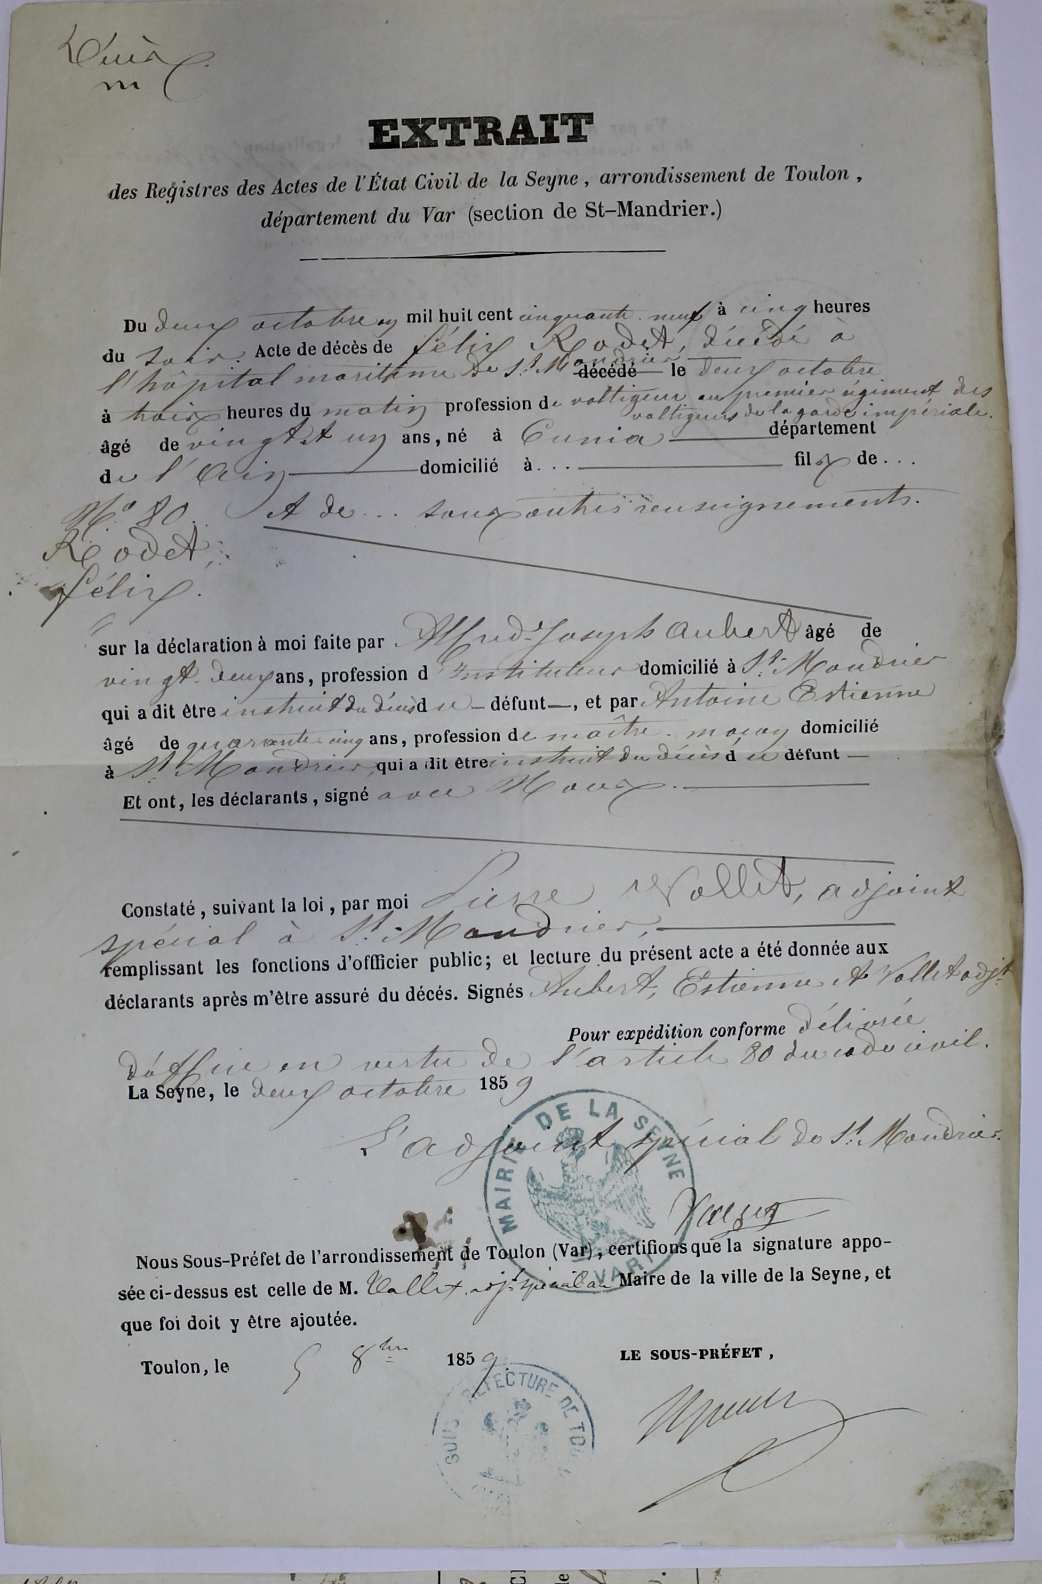 Décès
m
EXTRAIT
des Registres des Actes de l'État Civil de la Seyne, arrondissement de Toulon,
département du Var (section de St-Mandrier.)
Du deux octobre mil huit cent cinquante neuf à cinq heures
du soir. Acte de décès de félix Rodet, décédé à
l'hôpital maritime de St. Mandrier décédé le deux octobre
à trois heures du matin profession de voltigeur au premier régiment des
voltigeurs de la garde impériale.
âgé de vingt et un ans, né à Cunia département
de l'Ain domicilié à... fils de...
No. 80 et de... sans autres renseignements.
Rodet,
félix.
sur la déclaration à moi faite par Alfred Joseph Aubert âgé de
vingt-deux ans, profession d'instituteur domicilié à St. Mandrier
qui a dit être instruit du décès du défunt, et par Antoine Estienne
âgé de quarante-cinq ans, profession de maître-maçon domicilié
à St. Mandrier, qui a dit être instruit du décès du défunt
Et ont, les déclarants, signé avec Nous.
Constaté, suivant la loi, par moi Pierre Vollet, adjoint
spécial à St. Mandrier,
remplissant les fonctions d'offficier public; et lecture du présent acte a été donnée aux
déclarants après m'être assuré du décés. Signés Aubert, Estienne et Vollet adjt.
Pour expédition conforme délivrée
d'office en vertu de l'article 80 du code civil.
La Seyne, le deux octobre 1859
L'adjoint spécial de St. Mandrier.
MAIRIE DE LA SEYNE
(VAR)
Nous Sous-Préfet de l'arrondissement de Toulon (Var), certifions que la signature appo-
sée ci-dessus est celle de M. Vollet, adjt. spécial au Maire de la ville de la Seyne, et
que foi doit y être ajoutée.
Toulon, le 5 8bre 1859.
LE SOUS-PRÉFET,
SOUS PRÉFECTURE DE TOU